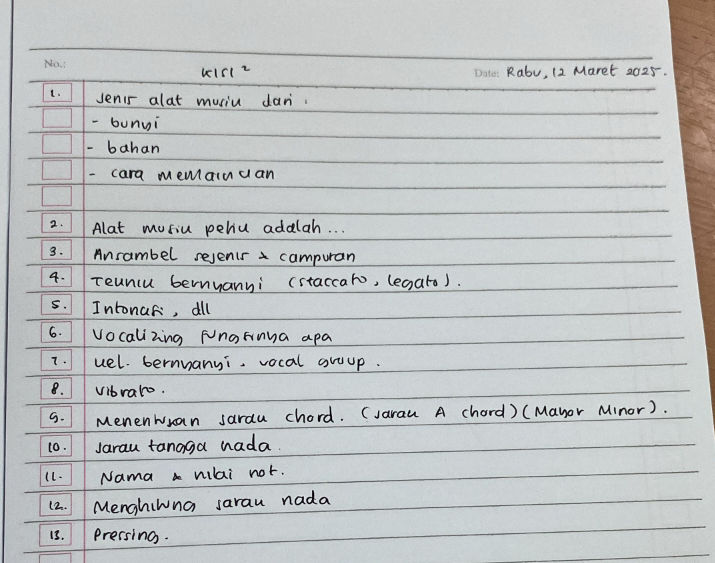 No.: Kisi² Date: Rabu, 12 Maret 2025.
1. Jenis alat musik dari :
- bunyi
- bahan
- cara memainkan
2. Alat musik pakil adalah...
3. Ansambel sejenis & campuran
4. Teknik bernyanyi (staccato, legato).
5. Intonasi, dll
6. Vocalizing fungsinya apa
7. Kel. bernyanyi. vocal group.
8. vibrato.
9. Menentukan jarak chord. (Jarak A chord) (Mayor Minor).
10. Jarak tangga nada.
11. Nama & nilai not.
12. Menghitung jarak nada
13. Pressing.